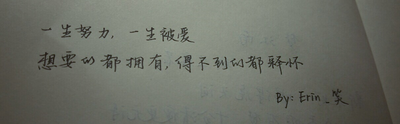 一生努力，一生被爱
想要的都拥有，得不到的都释怀
By: Erin_笑